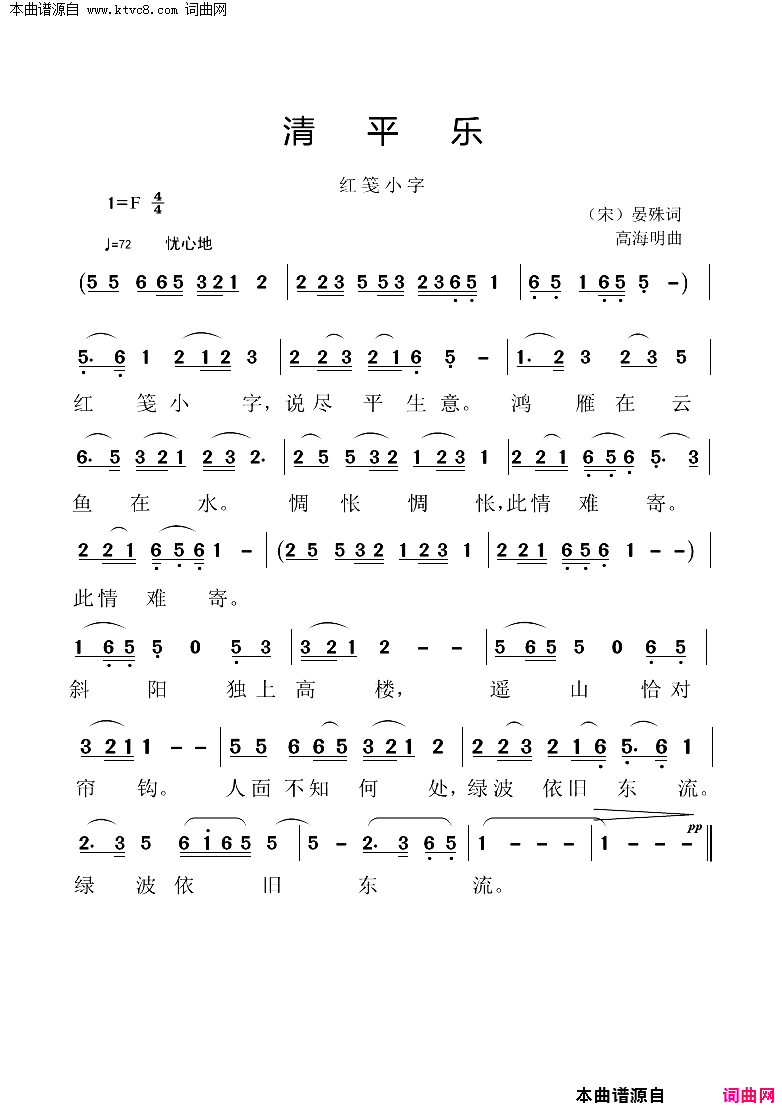 本曲谱源自 www.ktvc8.com 词曲网
清 平 乐
红笺小字
1=F 4/4
（宋）晏殊词
♩=72 忧心地
高海明曲
(5 5 6 6 5 3 2 1 2 | 2 2 3 5 5 3 2 3 6 5 1 | 6 5 1 6 5 5 - ) |
5. 6 1 2 1 2 3 | 2 2 3 2 1 6 5 - | 1. 2 3 2 3 5 |
红 笺 小 字，说 尽 平 生 意。 鸿 雁 在 云
6. 5 3 2 1 2 3 2. | 2 5 5 3 2 1 2 3 1 | 2 2 1 6 5 6 5. 3 |
鱼 在 水。 惆 怅 惆 怅，此 情 难 寄。
2 2 1 6 5 6 1 - | (2 5 5 3 2 1 2 3 1 | 2 2 1 6 5 6 1 - - ) |
此 情 难 寄。
1 6 5 5 0 5 3 | 3 2 1 2 - - | 5 6 5 5 0 6 5 |
斜 阳 独 上 高 楼， 遥 山 恰 对
3 2 1 1 - - | 5 5 6 6 5 3 2 1 2 | 2 2 3 2 1 6 5. 6 1 |
帘 钩。 人 面 不 知 何 处，绿 波 依 旧 东 流。
2. 3 5 6 1 6 5 5 | 5 - 2. 3 6 5 | 1 - - - | 1 - - - ‖
pp
绿 波 依 旧 东 流。
本曲谱源自 词曲网